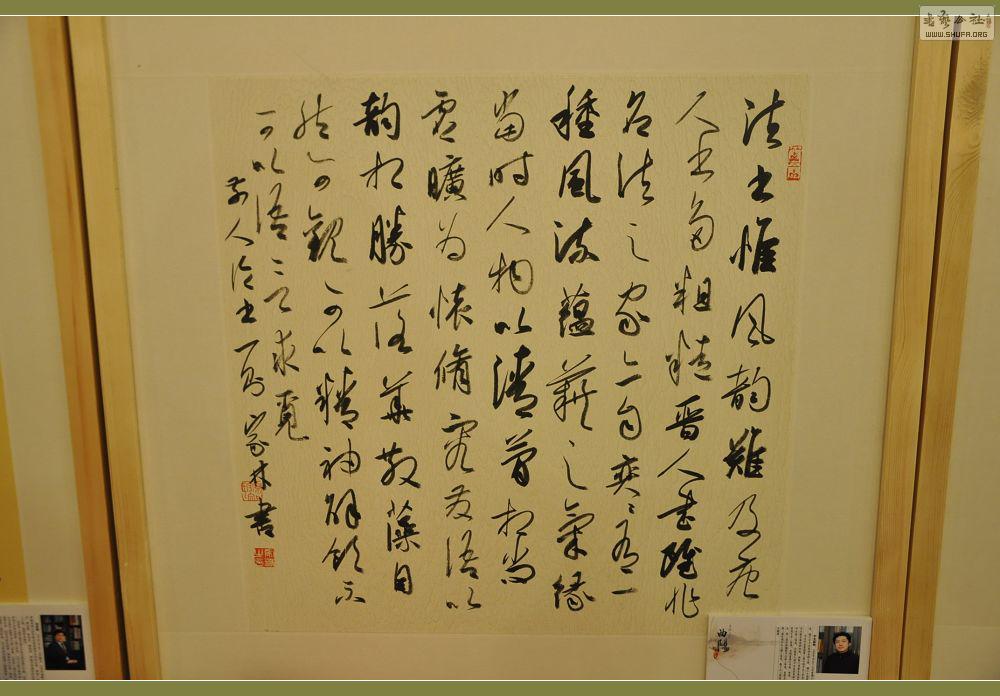 法书惟风韵难及虎
人书多粗糙晋人书虽非
名法之家亦自奕奕有一
种风流蕴藉之气缘
当时人物以清简相尚
虚旷为怀修容发语以
韵相胜落华散藻自
然可观可以精神解领不
可以语言求觅
前人论书一则 家林书
书艺公社
WWW.SHUFA.ORG